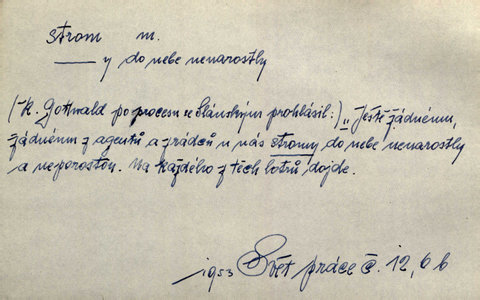 strom m.
—— y do nebe nenarostly
(K. Gottwald po procesu se Slánským prohlásil:) „Ještě žádnému,
žádnému z agentů a zrádců u nás stromy do nebe nenarostly
a neporostou. Na každého z těch lotrů dojde.
1953 Svět práce č. 12, 6 b